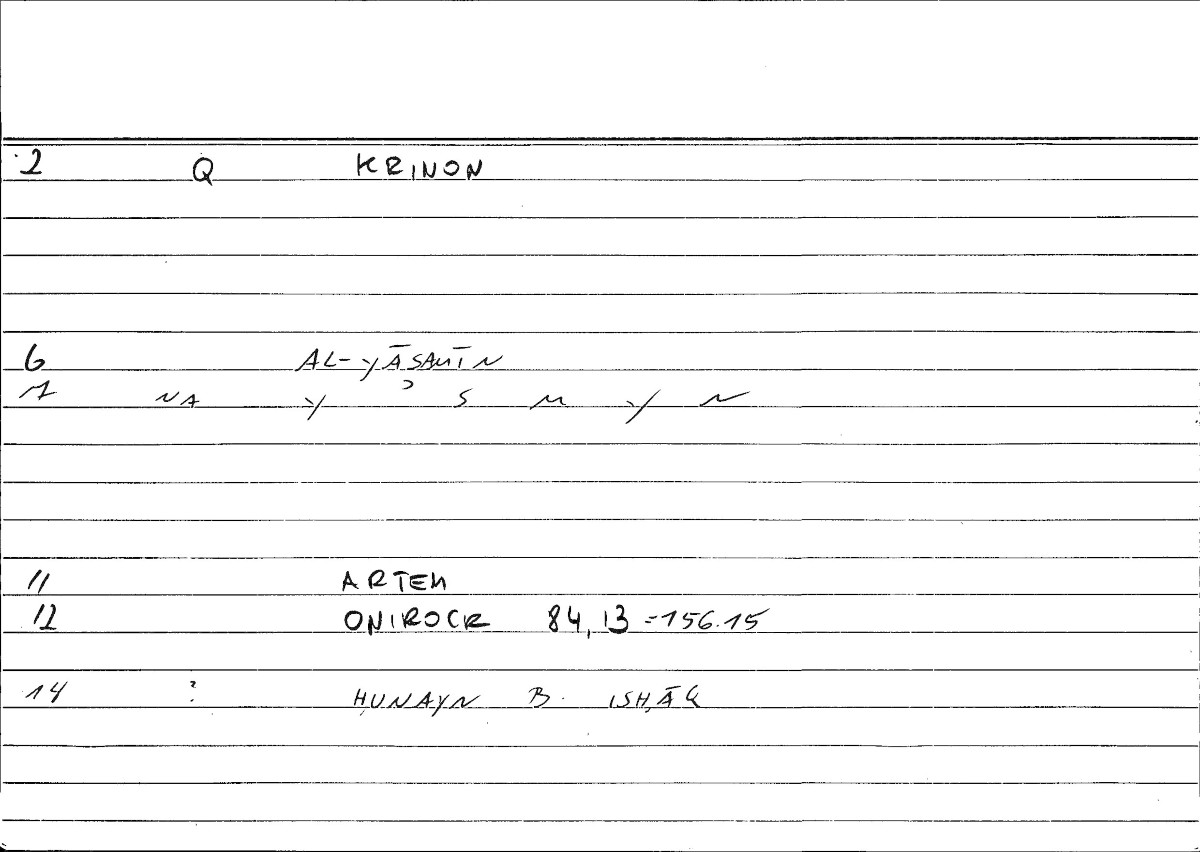 2 Q KRINON
6 AL-YĀSAMĪN
7 NA Y ʾ S M Y N
11 ARTEM
12 ONIROCR 84,13 =156.15
14 ? ḤUNAYN B. ISḤĀQ